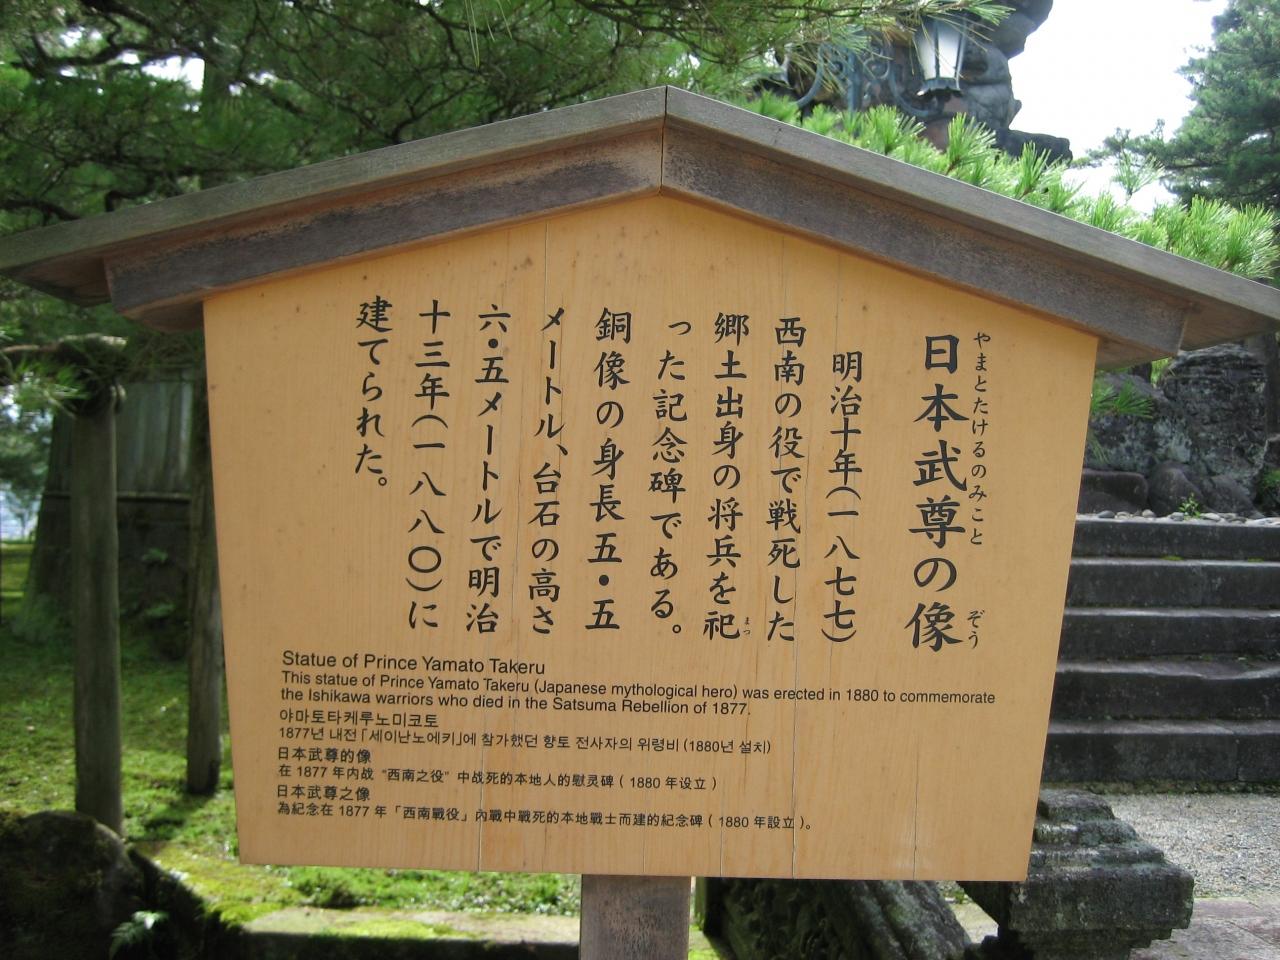 日本武尊の像
やまとたけるのみこと ぞう
明治十年(一八七七)
西南の役で戦死した
郷土出身の将兵を祀
まつ
った記念碑である。
銅像の身長五・五
メートル、台石の高さ
六・五メートルで明治
十三年(一八八〇)に
建てられた。
Statue of Prince Yamato Takeru
This statue of Prince Yamato Takeru (Japanese mythological hero) was erected in 1880 to commemorate
the Ishikawa warriors who died in the Satsuma Rebellion of 1877.
야마토타케루노미코토
1877년 내전「세이난노에키」에 참가했던 향토 전사자의 위령비 (1880년 설치)
日本武尊的像
在 1877 年内战 "西南之役" 中战死的本地人的慰灵碑 ( 1880 年设立 )
日本武尊之像
為紀念在 1877 年「西南戰役」內戰中戰死的本地戰士而建的紀念碑 ( 1880 年設立 )。